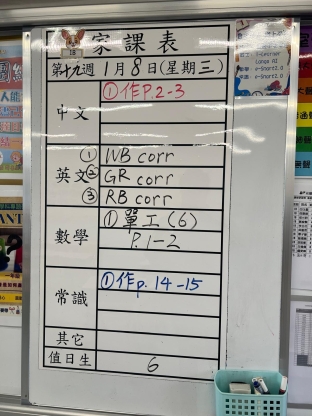 18
家課表
第十九週 1月8日(星期三)
中文 ①作P.2-3
英文 ① WB corr
② GR corr
③ RB corr
數學 ①單工(6)
P.1-2
常識 ①作p.14-15
其它
值日生 6